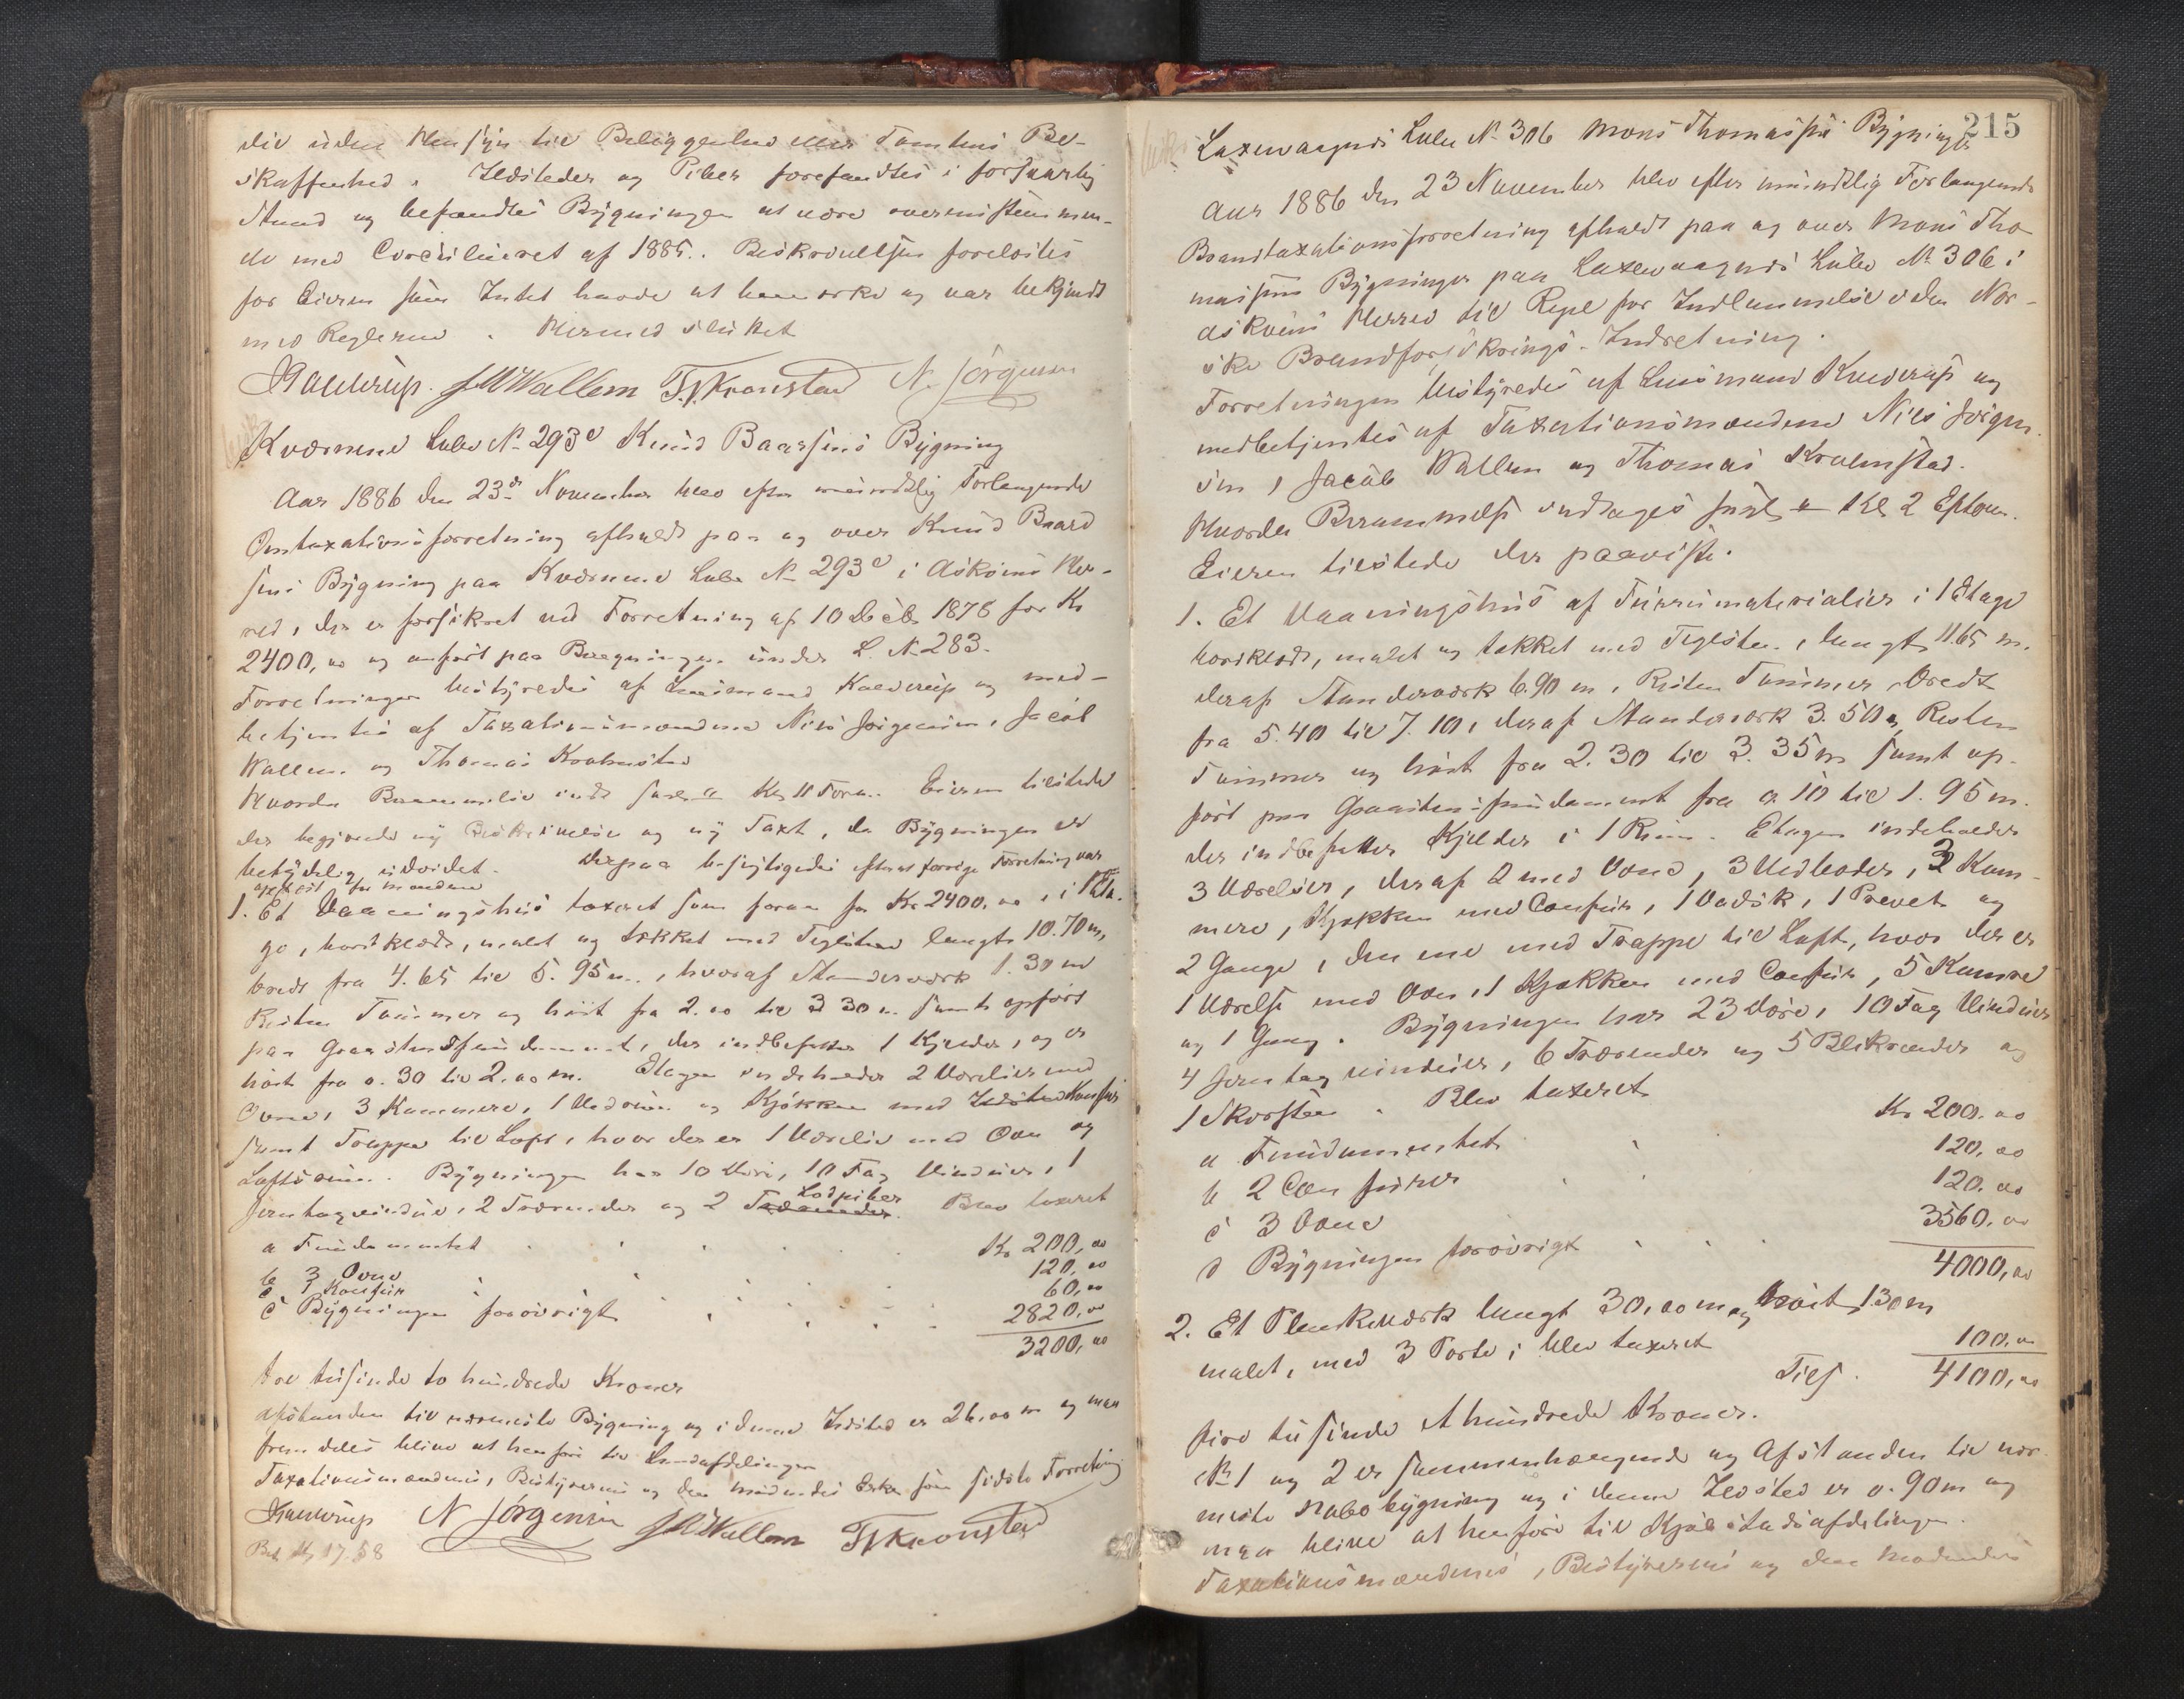 die uden Hensyn til Beliggenhed eller Tomtens Be-
skaffenhed. Ildsteder og Piber forefandtes i forsvarlig
Stand og befandtes Bygningen at være overensstemmen-
de med Circulæret af 1885. Beskrivelsen forelæstes
for Eieren som Intet havde at bemærke og var bekjendt
med Reglerne. Hermed sluttet
Kaldrup. J M Wallem T. J. Kronstad N. Jörgensen
Kværnene Løbe No 293c Knud Baarsens Bygning
Aar 1886 den 23de November blev efter mundtlig Forlangende
Omtaxationsforretning afholdt paa og over Knud Baard
sens Bygning paa Kværnene Løbe No 293c i Askøens Her-
red, der er forsikret ved Forretning af 10 Decbr 1878 for Kr
2400,00 og anført paa Beregningen under L. No 283.
Forretningen bestyredes af Lensmand Kaldrup og med-
betjentes af Taxationsmændene Nils Jörgensen, Jacob
Wallem og Thomas Krohnstad
Hvorda Berammelse indt Kl 11 Form. Eieren tilstede
der begjærede ny Beskrivelse og ny Taxt, da Bygningen er
betydelig udvidet. Derpaa besigtigedes efter at forrige Forretning var
oplæst for Mændene
1. Et Vaaningshus taxeret som foran for Kr 2400.00, i 1 Eta-
ge, bordklædt, malet og tækket med Teglsten langt 10.70 m,
bredt fra 4.65 til 5.95 m., hvoraf Standerværk 1.30 m
Resten Tømmer og høit fra 2.00 til 3 30 m. samt opført
paa Graastensfundament, der indbefatter 1 Kjelder, og er
høit fra 0.30 til 2.00 m. Etagen indeholder 2 Værelser med
Ovne, 3 Kammere, 1 Vedrum og Kjökken med Ildsted Konfur
samt Trappe til Loft, hvor der er 1 Værelse med Ovn og
Loftsrum. Bygningen har 10 Døre, 10 Fag Vinduer, 1
Jerntagvindue, 2 Trærender og 2 Trærender Lodpiber. Blev taxeret
a Fundamentet Kr 200,00
b 3 Ovne 120,00
c 1 Konfur 60,00
c Bygningen forøvrigt 2820,00
3200,00
tre tusinde to hundrede Kroner
Afstanden til nærmeste Bygning og i denne Ildsted er 26.00 m og maa
fremdeles blive at henføre til Landafdelingen
Taxationsmændenes, Bestyrerens og den mødendes Erkl som sidste Forretning
Kaldrup N Jörgensen J M Wallem T J Kronstad
Bet Kr 17.58
215
Laxevaagnes Løbe No 306 Mons Thomassens Bygninger
Aar 1886 den 23 November blev efter mundtlig Forlangende
Brandtaxationsforretning afholdt paa og over Mons Tho-
massens Bygninger paa Laxevaagnes Løbe No 306 i
Askøens Herred til Regel for Indlemmelse i den Nor-
ske Brandforsikrings-Indretning.
Forretningen bestyredes af Lensmand Kaldrup og
medbetjentes af Taxationsmændene Nils Jörgen-
sen, Jacob Wallem og Thomas Krohnstad.
Hvorda Berammelse indtages Kl 2 Efterm.
Eieren tilstede der paaviste.
1. Et Vaaningshus af Furumaterialier i 1 Etage
bordklædt, malet og tækket med Teglsten, langt 11.65 m.
deraf Standerværk 6.90 m, Resten Tømmer, bredt
fra 5.40 til 7.10, deraf Standerværk 3.50, Resten
Tømmer og høit fra 2.30 til 3.35 m samt op-
ført paa Graastensfundament fra 0.10 til 1.95 m.
der indbefatter Kjelder i 1 Rum. Etagen indeholder
3 Værelser, deraf 2 med Ovne, 3 Vedboder, 3 Kam-
mere, Kjøkken med Comfur, 1 Vadsk, 1 Prevet og
2 Gange, den ene med Trappe til Loft, hvor der er
1 Værelse med Ovn, 1 Kjøkken med Comfur, 5 Kamre
og 1 Gang. Bygningen har 23 Døre, 10 Fag Vinduer
4 Jerntagvinduer, 6 Trærender og 5 Blikrender og
1 Skorsten. Blev taxeret
a Fundamentet Kr 200.00
b 2 Comfurer 120.00
c 3 Ovne 120.00
d Bygningen forøvrigt 3560.00
4000,00
2. Et Plankeværk langt 30,00 m og høit 1.30 m
malet, med 3 Porte; blev taxeret 100.00
Tils. 4100,00
fire tusinde et hundrede Kroner.
No 1 og 2 er sammenhængende og Afstanden til nær-
meste Nabobygning og i denne Ildsted er 0.90 m og
maa blive at henføre til Kjøbstadsafdelingen.
Taxationsmændenes, Bestyrerens og den Mødendes